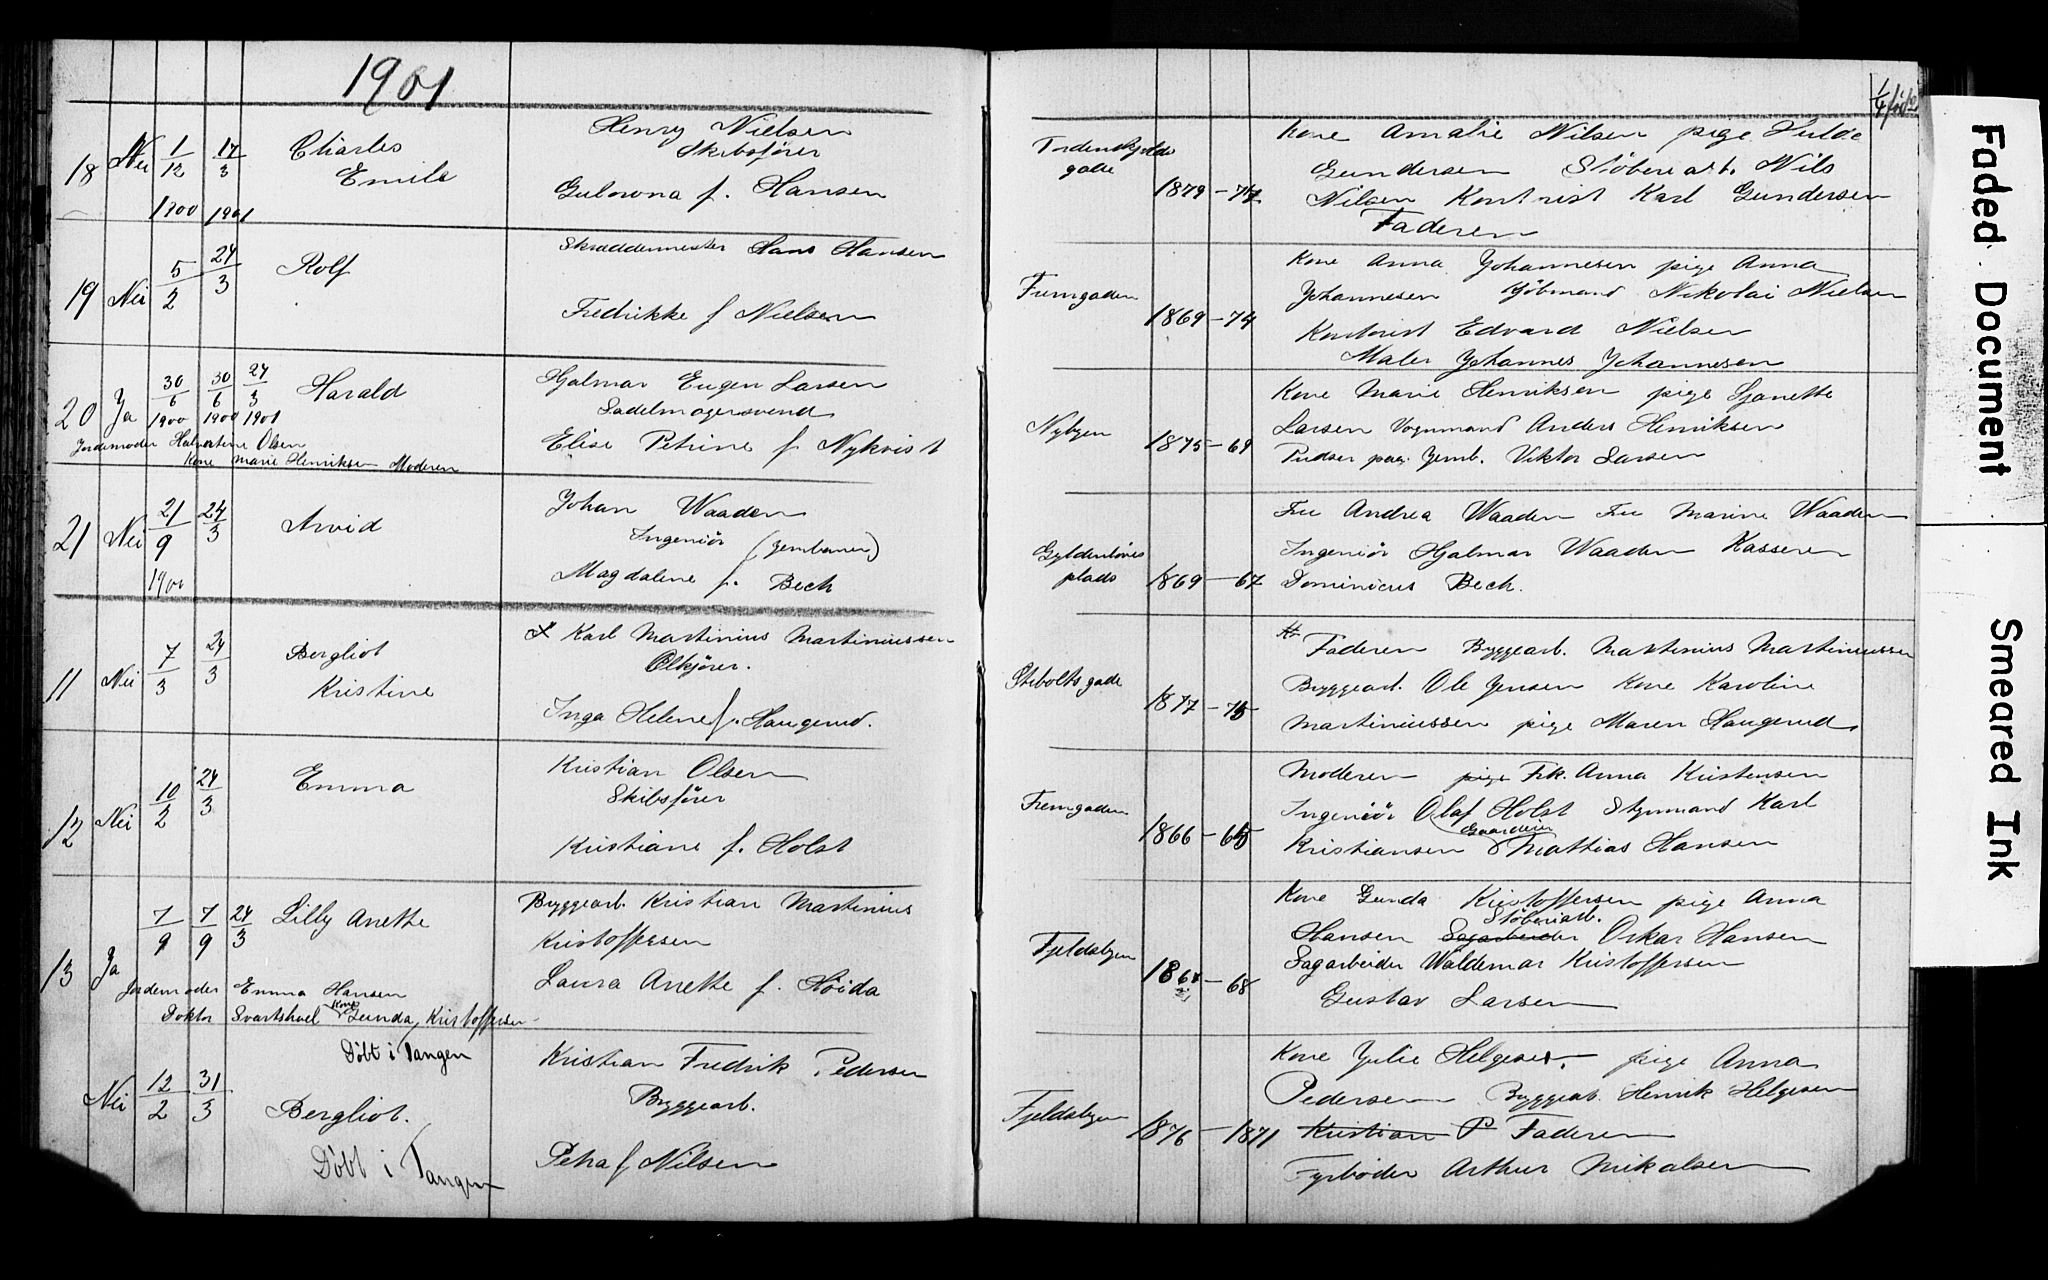 1901
18 Nei 1/12 1900 17/3 1901
Charles
Emile
Henry Nielsen
Skibsfører
Gulowna f. Hansen
19 Nei 5/2 24/3
Rolf
Skræddermester Hans Hansen
Fredrikke f Nielsen
20 Ja 30/6 1900 30/6 1900 24/3 1901
Harald
Jordemoder Halvartine Olsen
Kone Marie Henriksen Moderen
Hjalmar Eugen Larsen
Sadelmagersvend
Elise Petrine f Nykvist
21 Nei 21/9 1900 24/3
Arvid
Johan Waaden
Ingeniør (Jernbanen)
Magdalene f. Bech
11 Nei 7/3 24/3
Bergliot
Kristine
Karl Martinius Martiniussen
Ølkjører.
Inga Helene f. Haugerud.
12 Nei 10/2 24/3
Emma
Kristian Olsen
Skibsfører
Kristiane f. Holst
13 Ja 7/9 7/9 24/3
Lilly Anette
Jordemoder Emma Hansen
Doktor Svartshoel Kone Gunda Kristoffersen
Byggearb. Kristian Martinius
Kristoffersen
Laura Anette f. Høida
Døbt i Tangen
Nei 12/2 31/3
Bergliot.
Døbt i Tangen
Kristian Fredrik Pedersen
Byggearb.
Petra f Nilsen
Tordenskjolds
gade
1879-77
Kone Amalie Nilsen pige Hulda
Gundersen Støberiarb. Nils
Nilsen Kontorist Karl Gundersen
Faderen
Fremgaden
1869-74
Kone Anna Johannesen pige Anna
Johannesen Kjøbmand Nikolai Nielsen
Kontorist Edvard Nielsen
Maler Johannes Johannesen
Nybyen
1875-69
Kone Marie Henriksen pige Sjanette
Larsen Vognmand Anders Henriksen
Pudser paa Jernb. Viktor Larsen
Gyldenløves
plads
1869-67
Fru Andrea Waaden Fru Marine Waaden
Ingeniør Hjalmar Waaden Kasserer
Dominicus Bech.
Stiboltsgade
1877-75
Faderen Byggearb. Martinius Martiniussen
Byggearb. Ole Jensen Kone Karoline
Martiniussen pige Maren Haugerud
Fremgaden
1866-65
Moderen pige Frk. Anna Kristensen
Ingeniør Olaf Holst Styrmand Karl
Kristiansen Gaardeier Mathias Hansen
Fjeldsbyen
1868-68
Kone Gunda Kristoffersen pige Anna
Støberiarb.
Hansen Sagarbeider Oskar Hansen
Sagarbeider Waldemar Kristoffersen
Gustav Larsen
Fjeldsbyen
1876-1871
Kone Julie Helgesen, pige Anna
Pedersen Byggearb. Henrik Helgesen
Kristian P Faderen
Fyrbøder Arthur Mikalsen
Faded Document
Smeared Ink